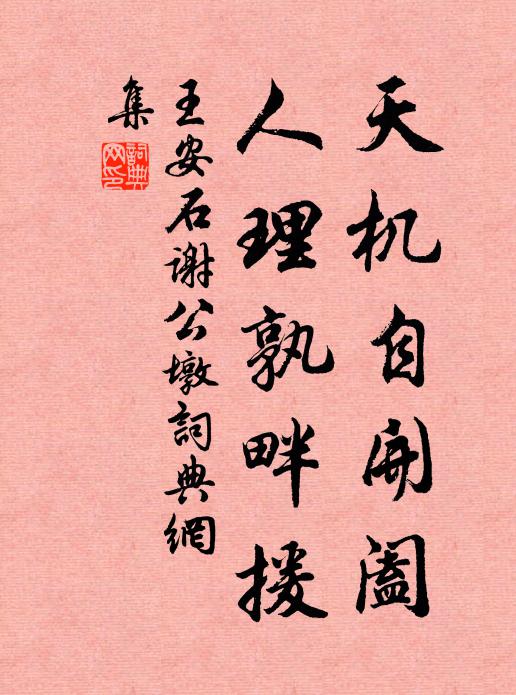 天机自開阖
人理孰畔援
王安石谢公墩詞典網
集
詞典
网印